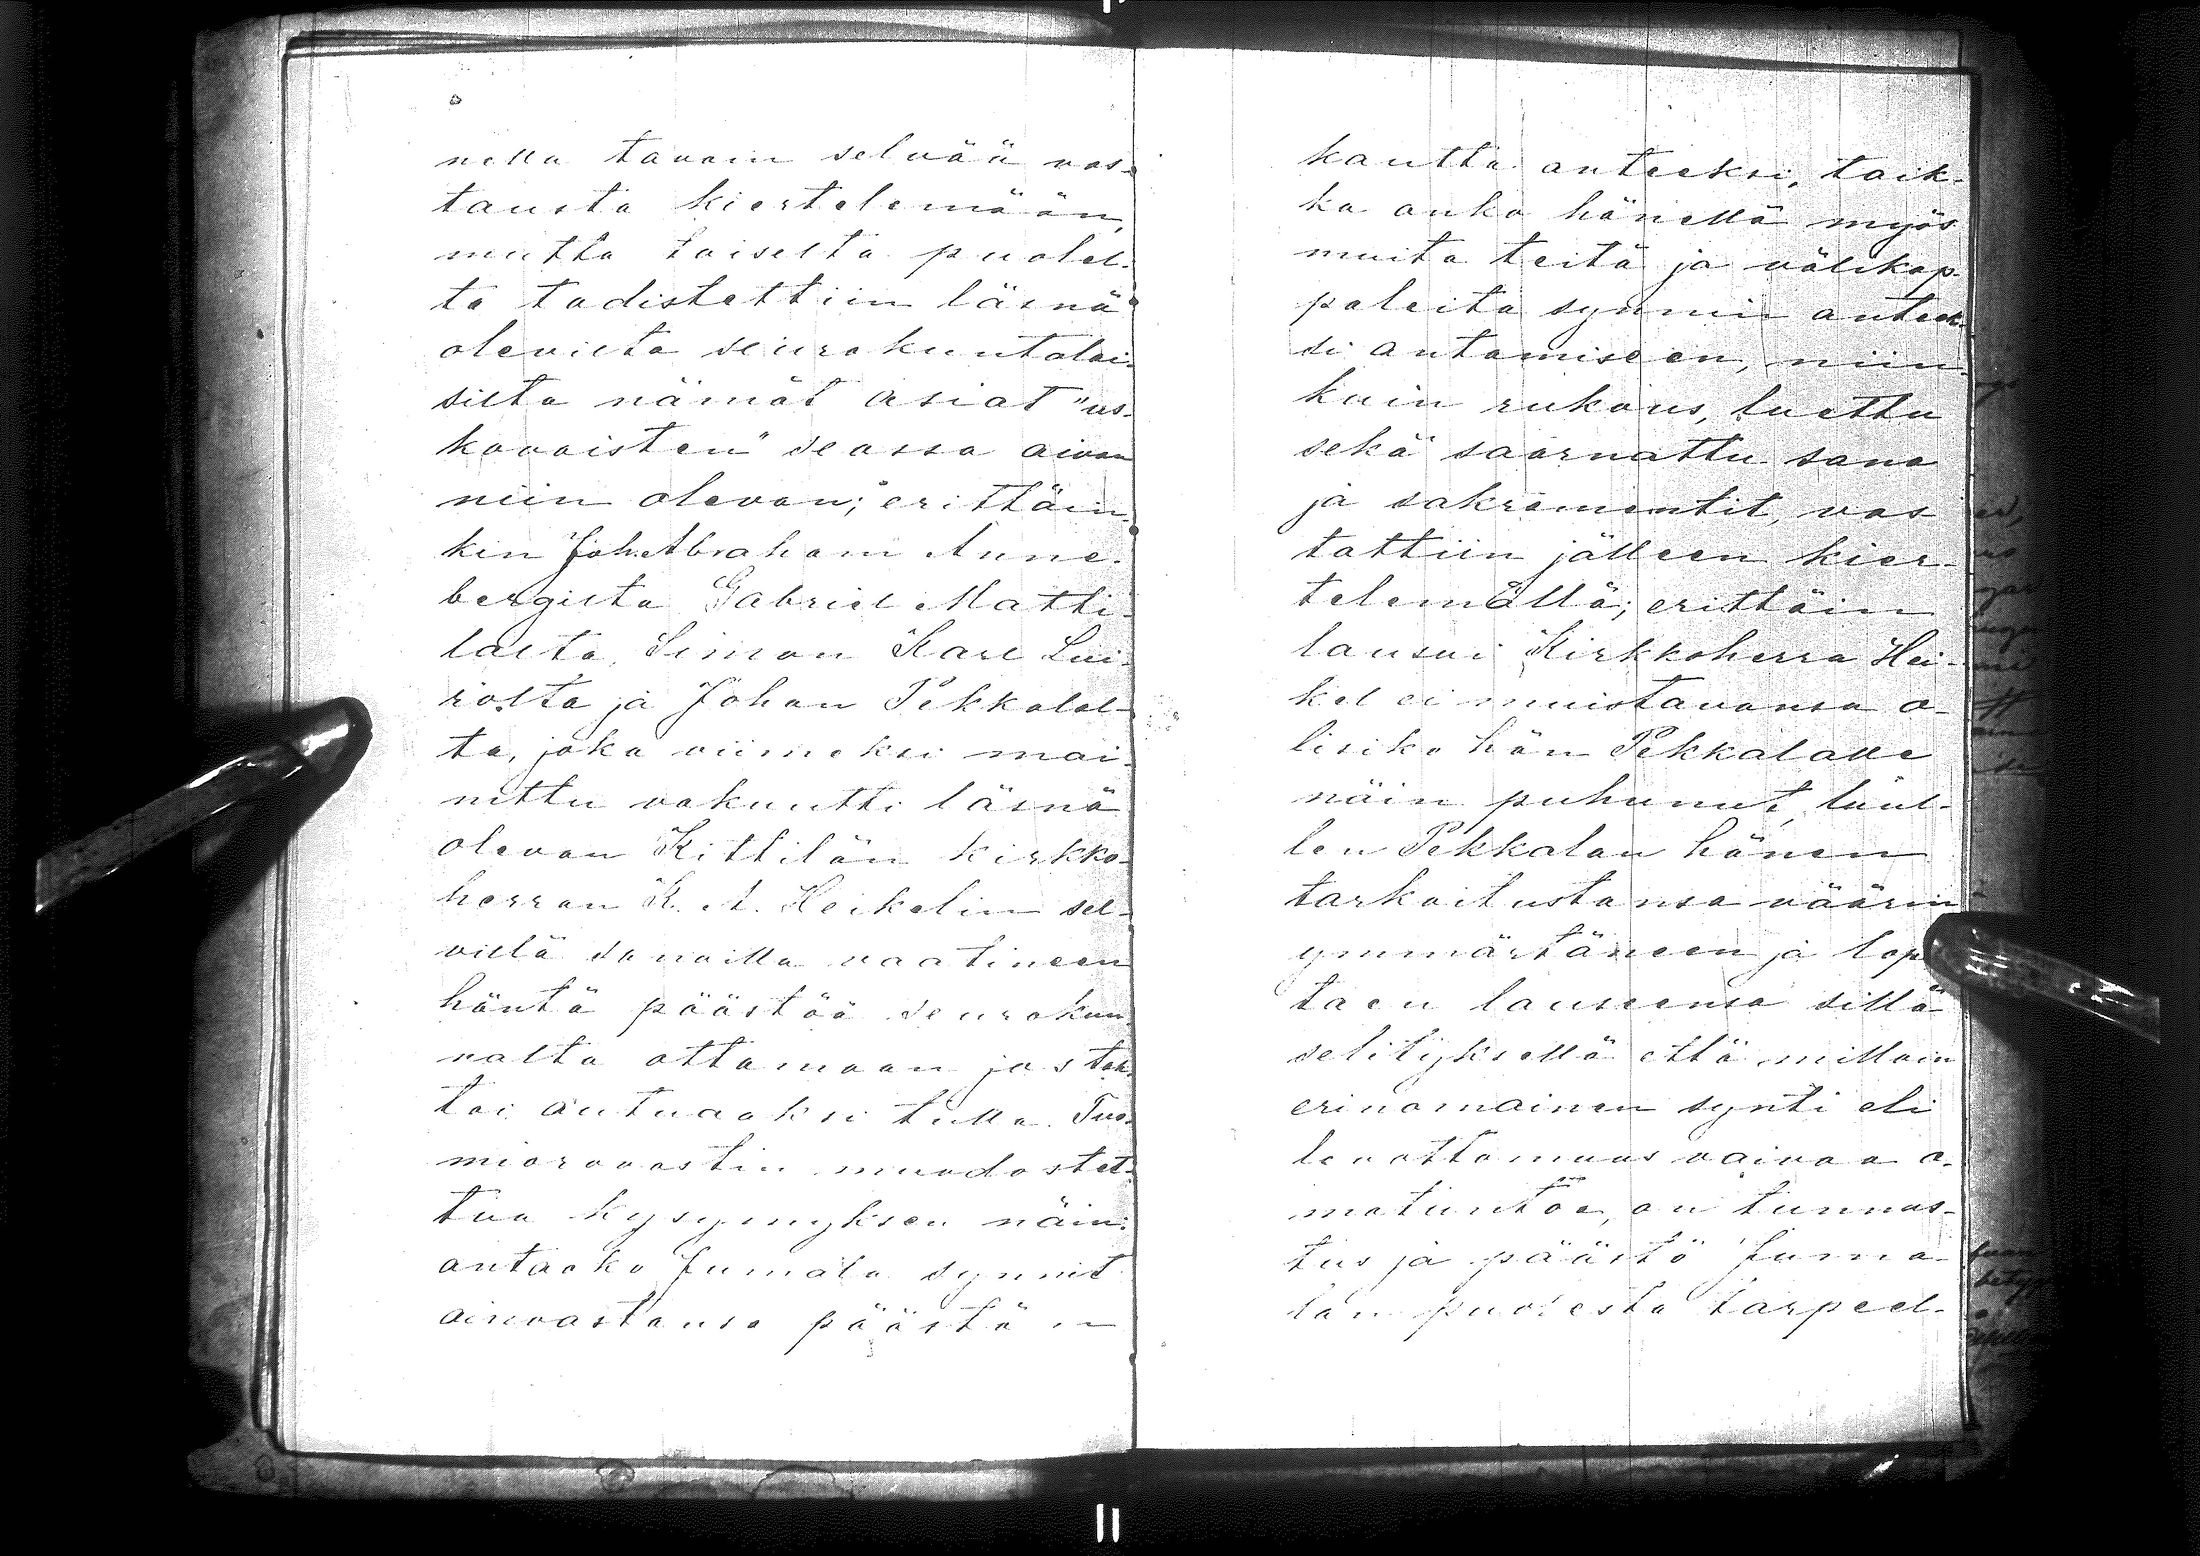 nella tavain selvää vas-
tausta kiertelemään,
mutta toiselta puolel-
ta todistettiin läsnä
olevilta seurakuntalai-
silta nämät asiat "us-
kovaisten" seassa aivan
niin olevan; erittäin-
kin Joh. Abraham Anne-
bergilta Gabriel Matti-
lalta, Simon Karl Lui-
rolta ja Johan Pekkalal-
ta, joka viimeksi mai-
nittu vakuutti läsnä
olevan Kittilän kirkko-
herran K. A. Heikelin sel-
villä sanoilla vaatineen
häntä päästöä seurakun-
nalta ottamaan jos tah-
toi autuaaksi tulla. Tuo-
miorovastin muodostet-
tua kysymyksen näin:
antaako Jumala synnit
ainoastansa päästön
kautta anteeksi, taik-
ka onko hänellä myös
muita teitä ja välikap-
paleita synnin anteek-
si antamiseen, niin-
kuin rukous, luettu
sekä saarnattu sana
ja sakramentit, vas
tattiin jälleen kier-
telemällä; erittäin
lausui Kirkkoherra Hei-
kel ei muistavansa o-
lisiko hän Pekkalalle
näin puhunut, luul-
len Pekkalan hänen
tarkoitustansa väärin
ymmärtäneen ja lop
taen lauseensa sillä
selityksellä että milloin
erinomainen synti eli
levottomuus vaivaa o-
matuntoa, on tunnus-
tus ja päästö Juma-
lan puolesta tarpeel-